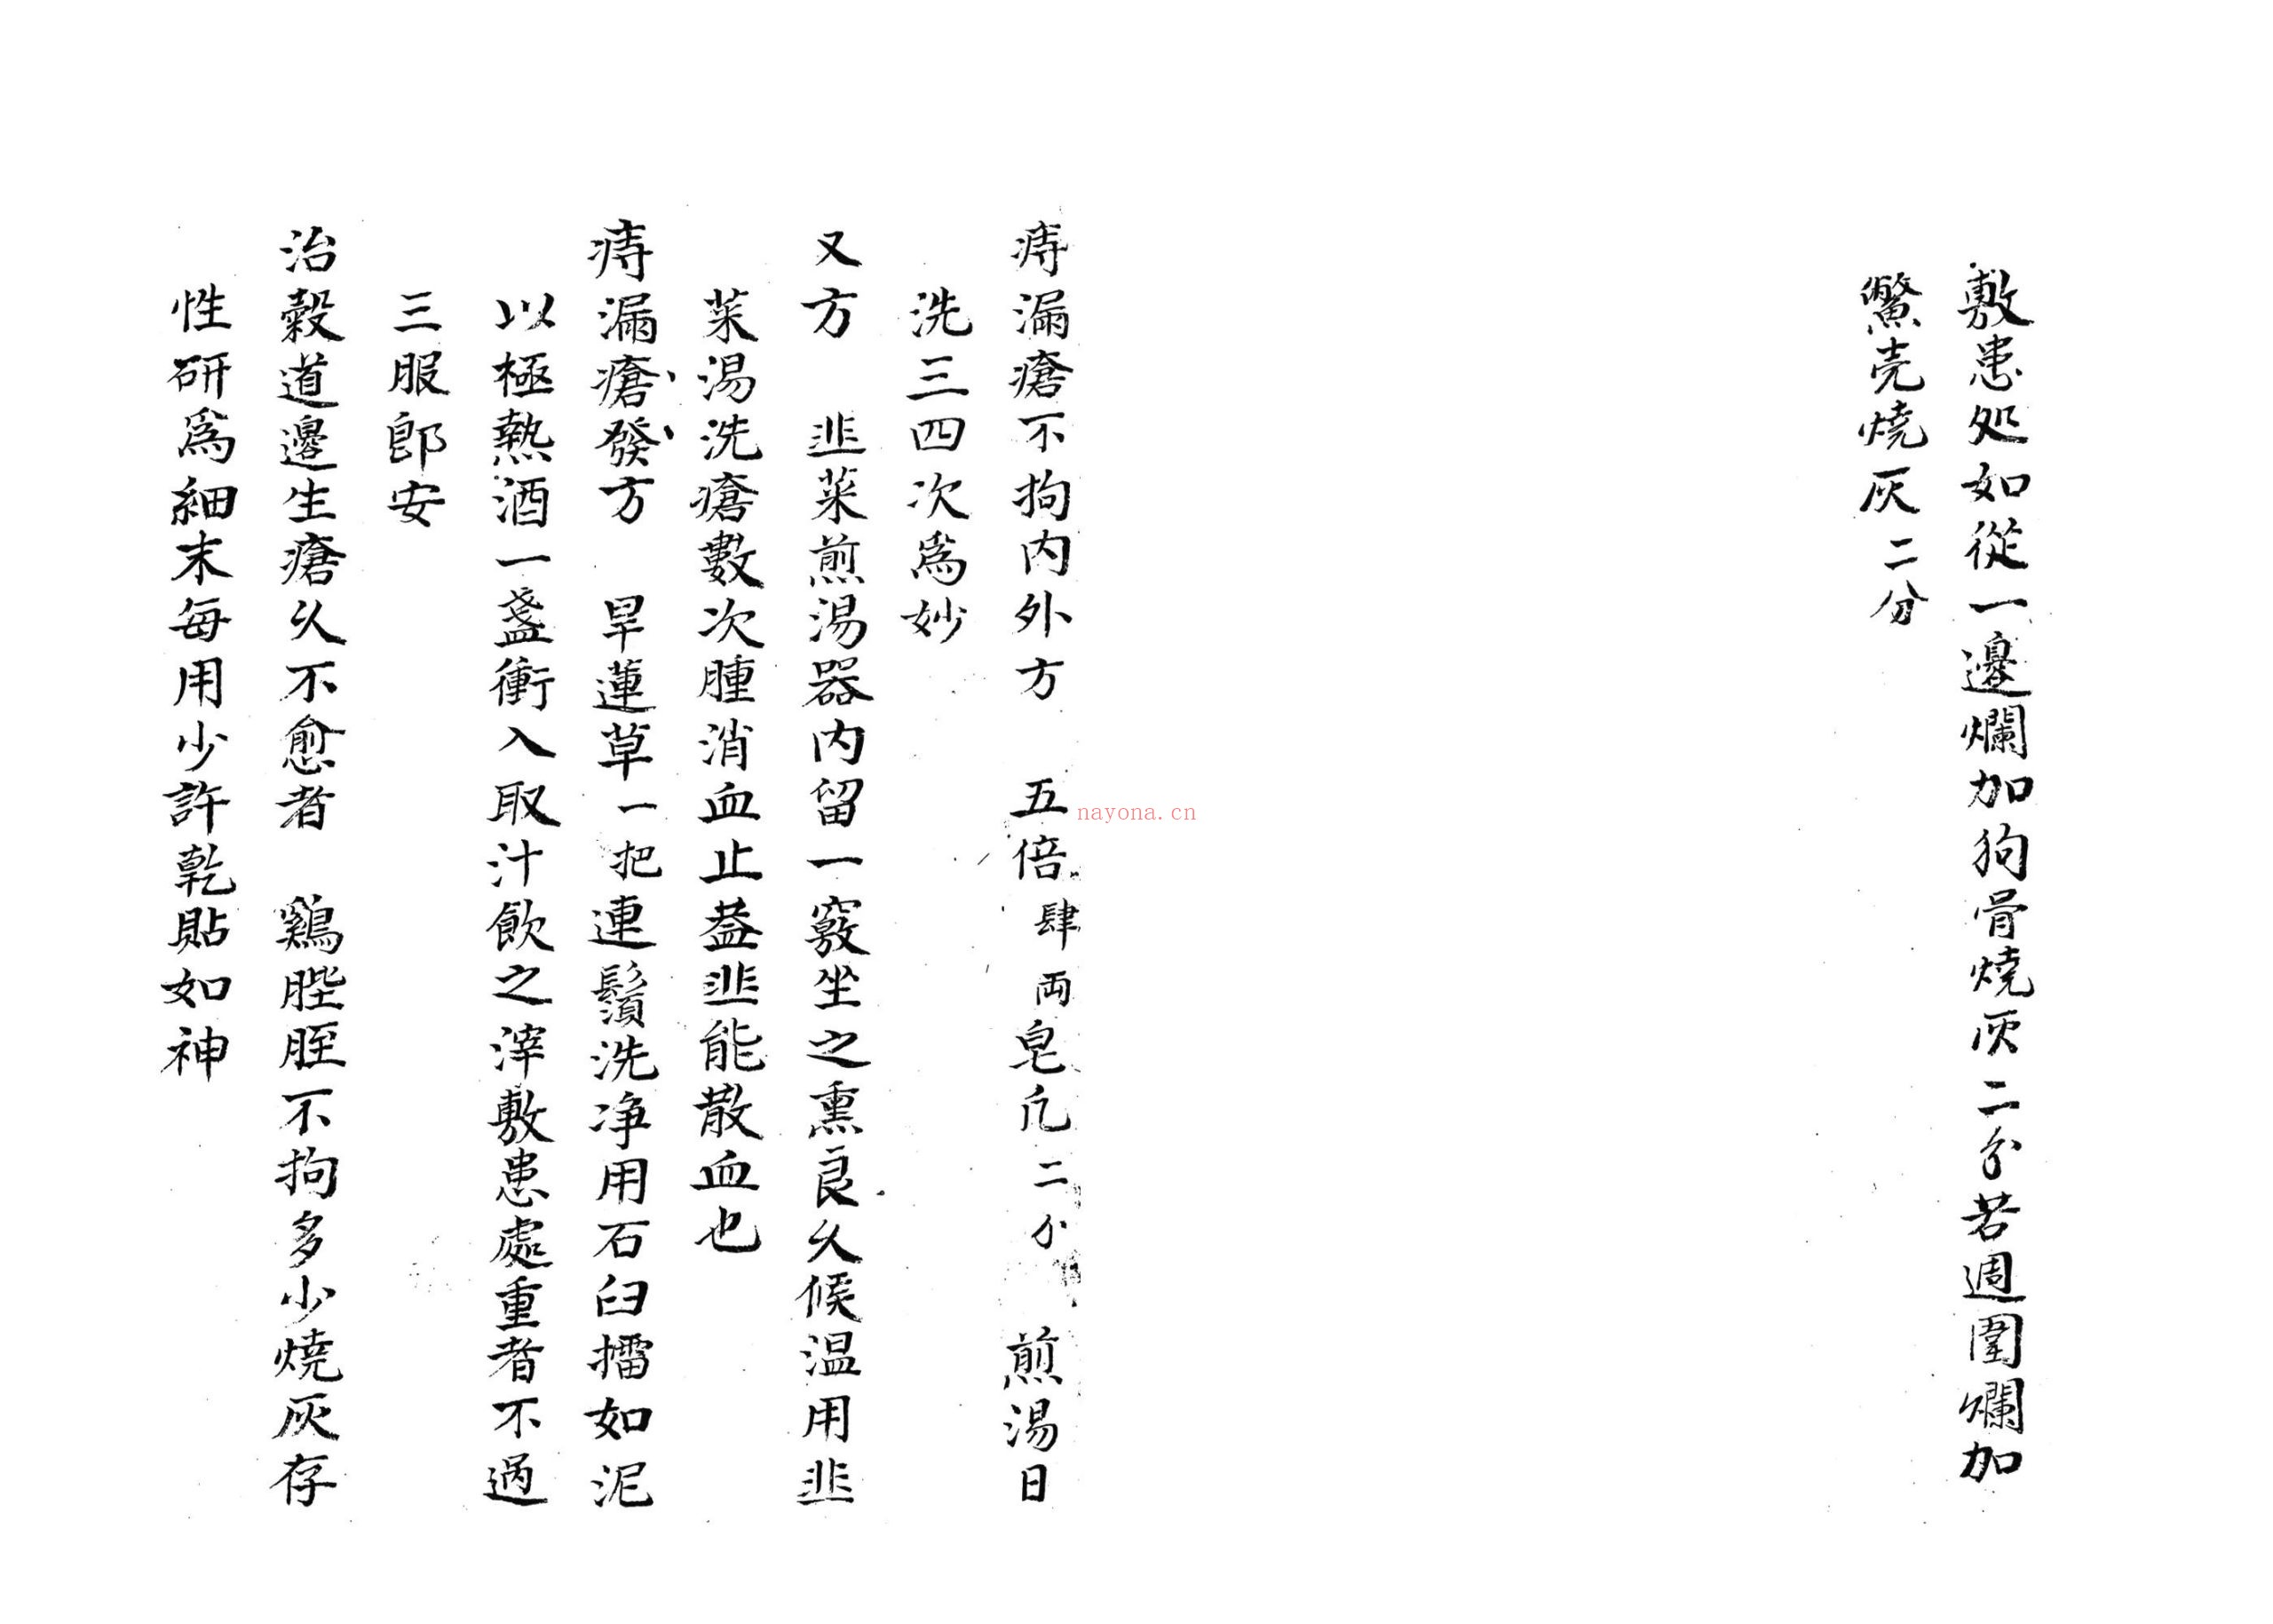 敷患处如從一邊爛加狗骨燒灰二分若週圍爛加
鱉壳燒灰二分
痔漏瘡不拘内外方　五倍肆両皂凡二分　煎湯日
洗三四次為妙
又方　韭菜煎湯器内留一竅坐之熏良久候温用韭
菜湯洗瘡數次腫消血止葢韭能散血也
痔漏瘡發方　旱蓮草一把連鬚洗净用石臼擂如泥
以極熱酒一盞衝入取汁飲之滓敷患處重者不過
三服郎安
治穀道邊生瘡久不愈者　鷄膍胵不拘多少燒灰存
性研爲細末每用少許乾貼如神
nayona.cn